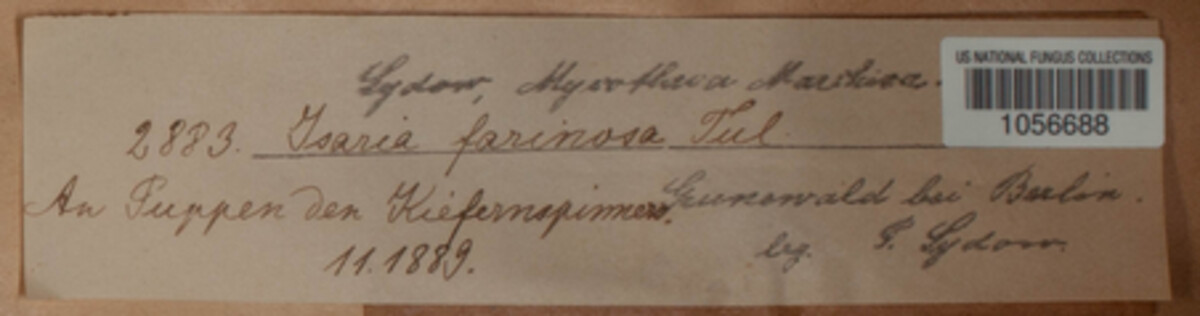 Sydow, Mycotheca Marchica.
US NATIONAL FUNGUS COLLECTIONS
1056688
2883. Isaria farinosa Tul.
An Puppen den Kiefernspinners. Grunewald bei Berlin.
11.1889. leg. P. Sydow.